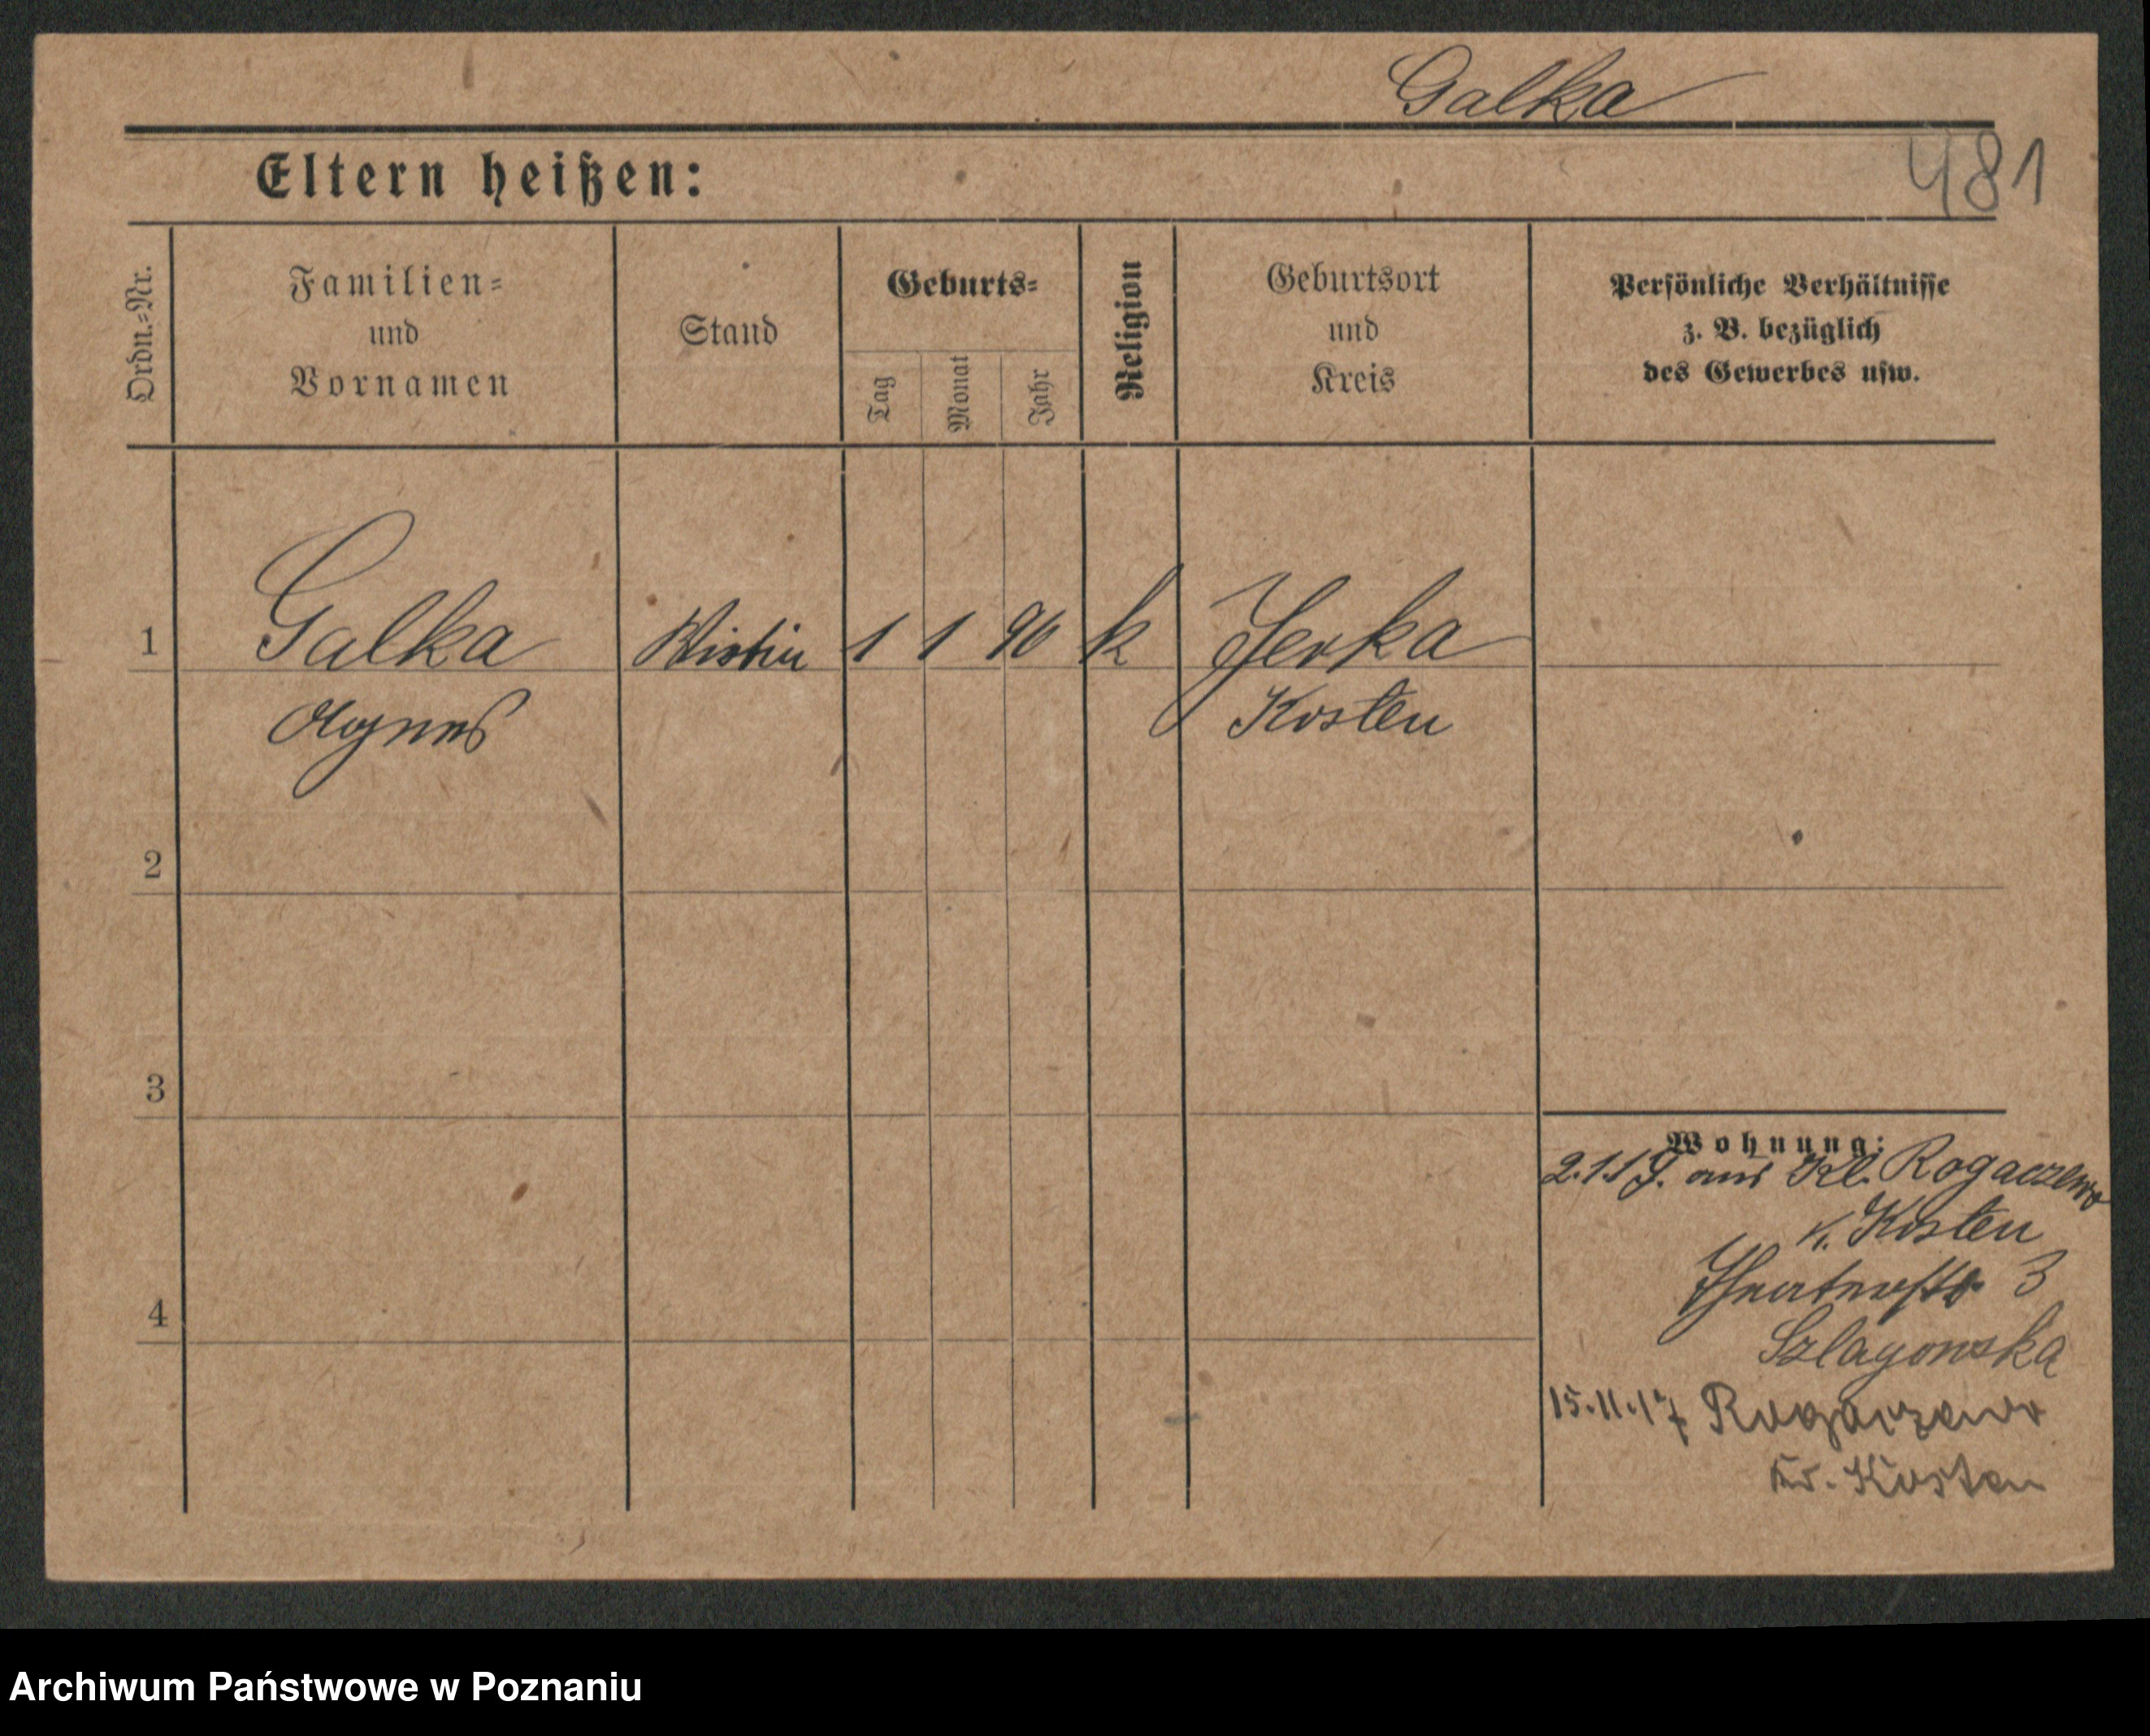 Galka
481
Eltern heißen:
Ordn.-Nr.
Familien-
und
Vornamen
Stand
Geburts-
Tag
Monat
Jahr
Religion
Geburtsort
und
Kreis
Persönliche Verhältnisse
z. B. bezüglich
des Gewerbes usw.
1
Galka
Agnes
1 1 90
k
Jerka
Kosten
2
3
4
Wohnung:
aus Kl. Rogaczewo
K. Kosten
3
Szlagowska
15.11.17 Rogaczewo
Kr. Kosten
Archiwum Państwowe w Poznaniu